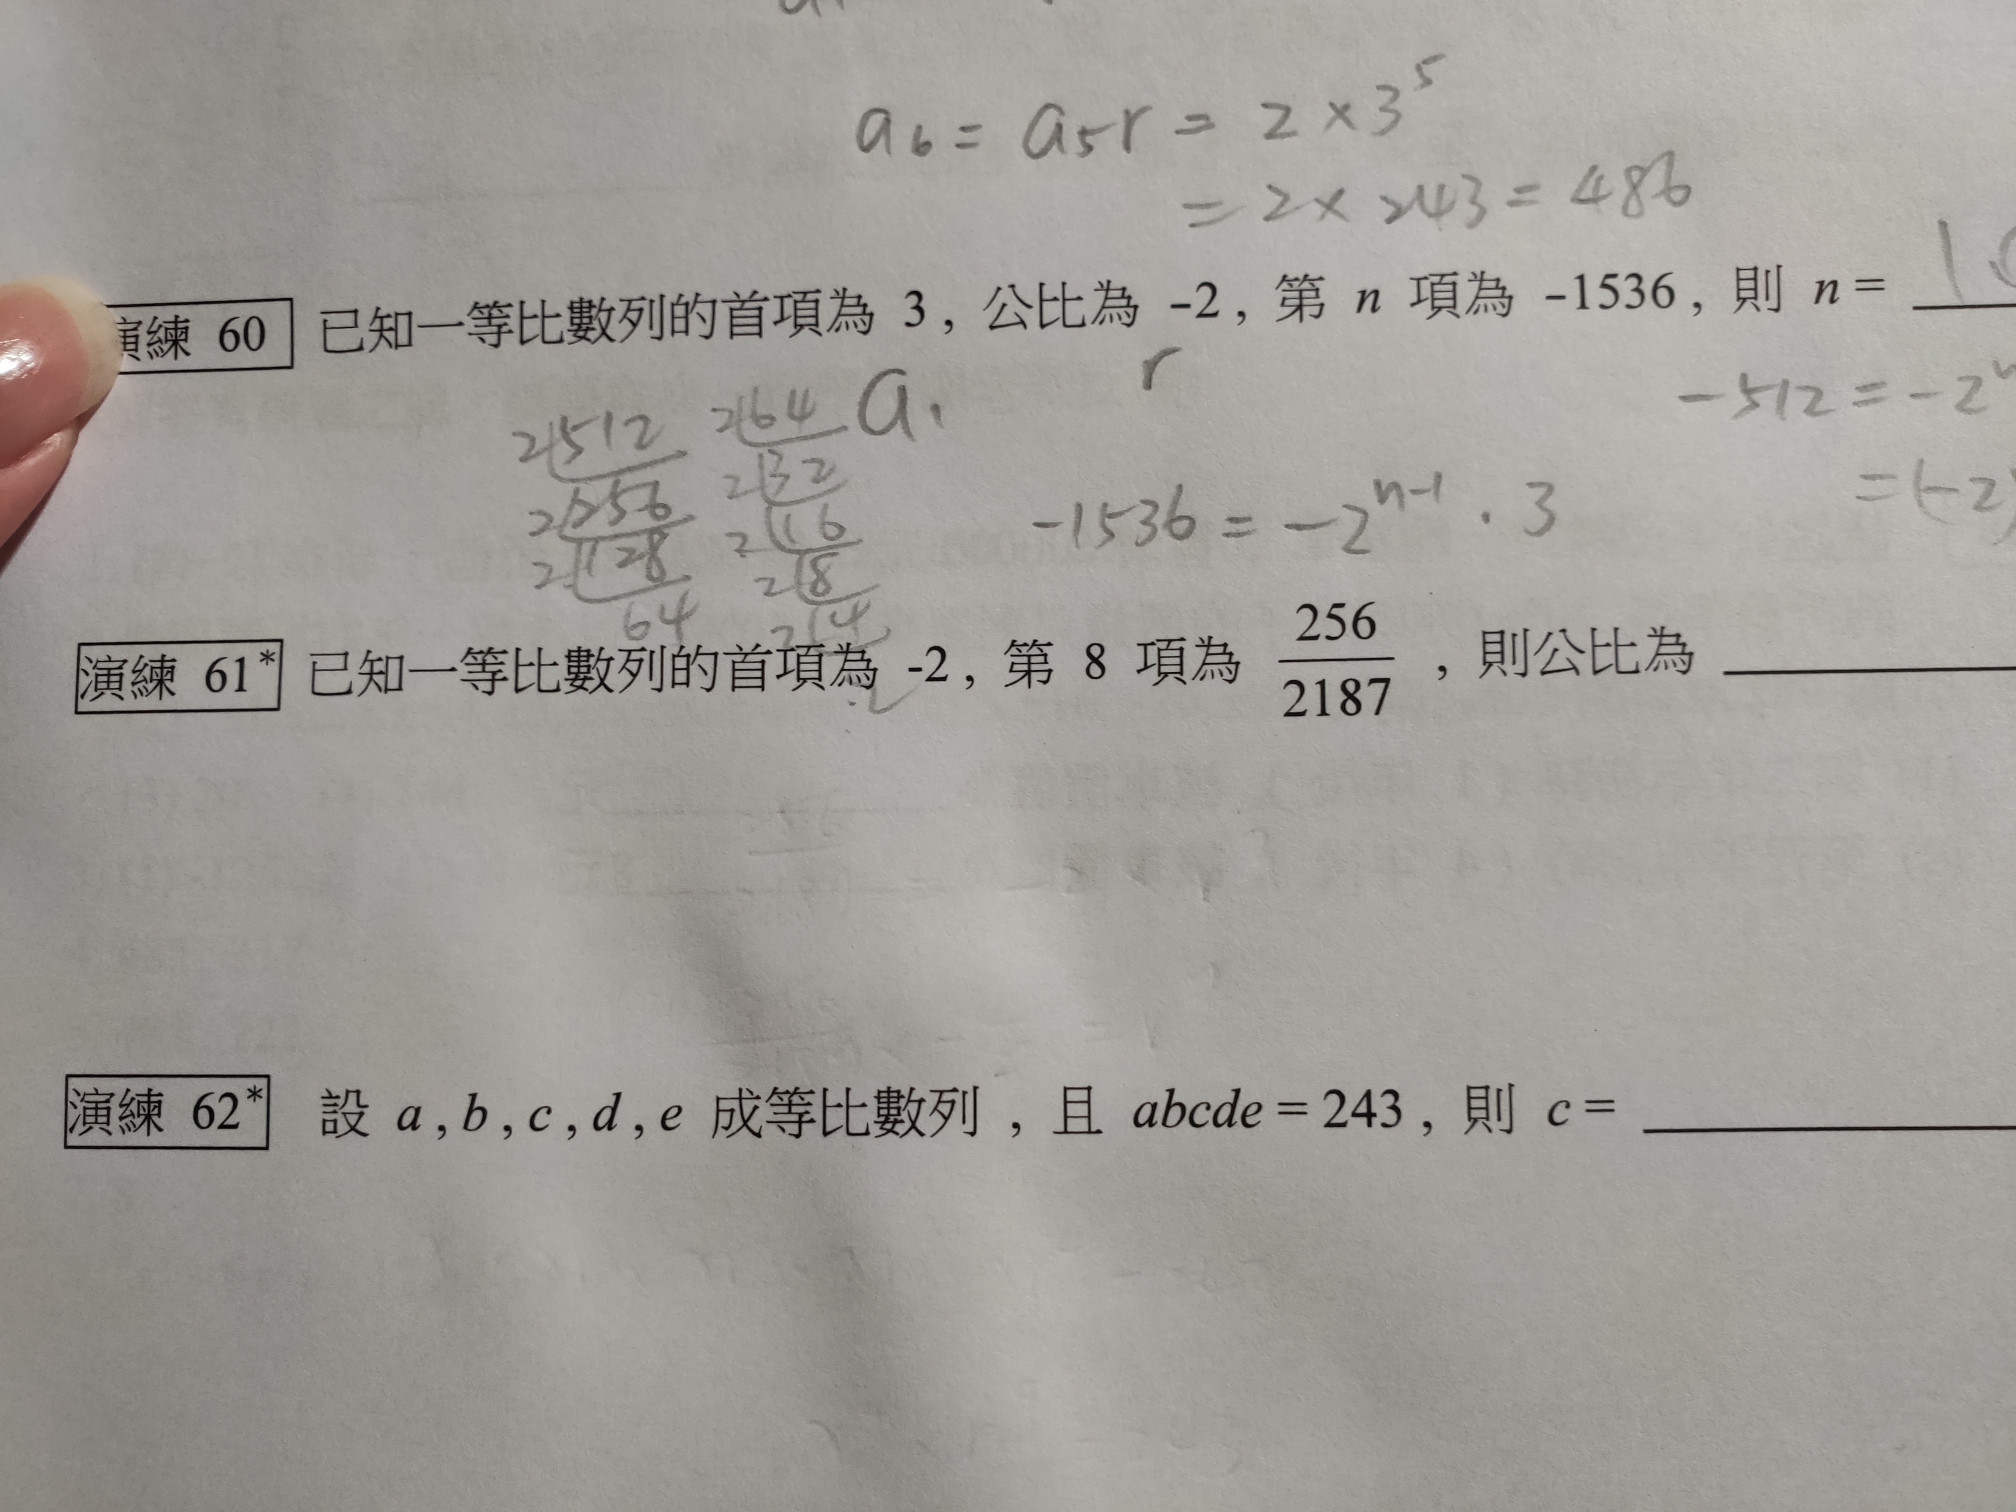 a₆ = a₅r = 2 × 3⁵
= 2 × 243 = 486
演練 60 已知一等比數列的首項為 3 , 公比為 -2 , 第 n 項為 -1536 , 則 n =
a₁ r
-512 = -2
2 512 2 64
2 256 2 32
2 128 2 16
64 2 8
2 4
2
-1536 = -2ⁿ⁻¹ · 3
= (-2)
演練 61* 已知一等比數列的首項為 -2 , 第 8 項為 256/2187 , 則公比為
演練 62* 設 a , b , c , d , e 成等比數列 , 且 abcde = 243 , 則 c =